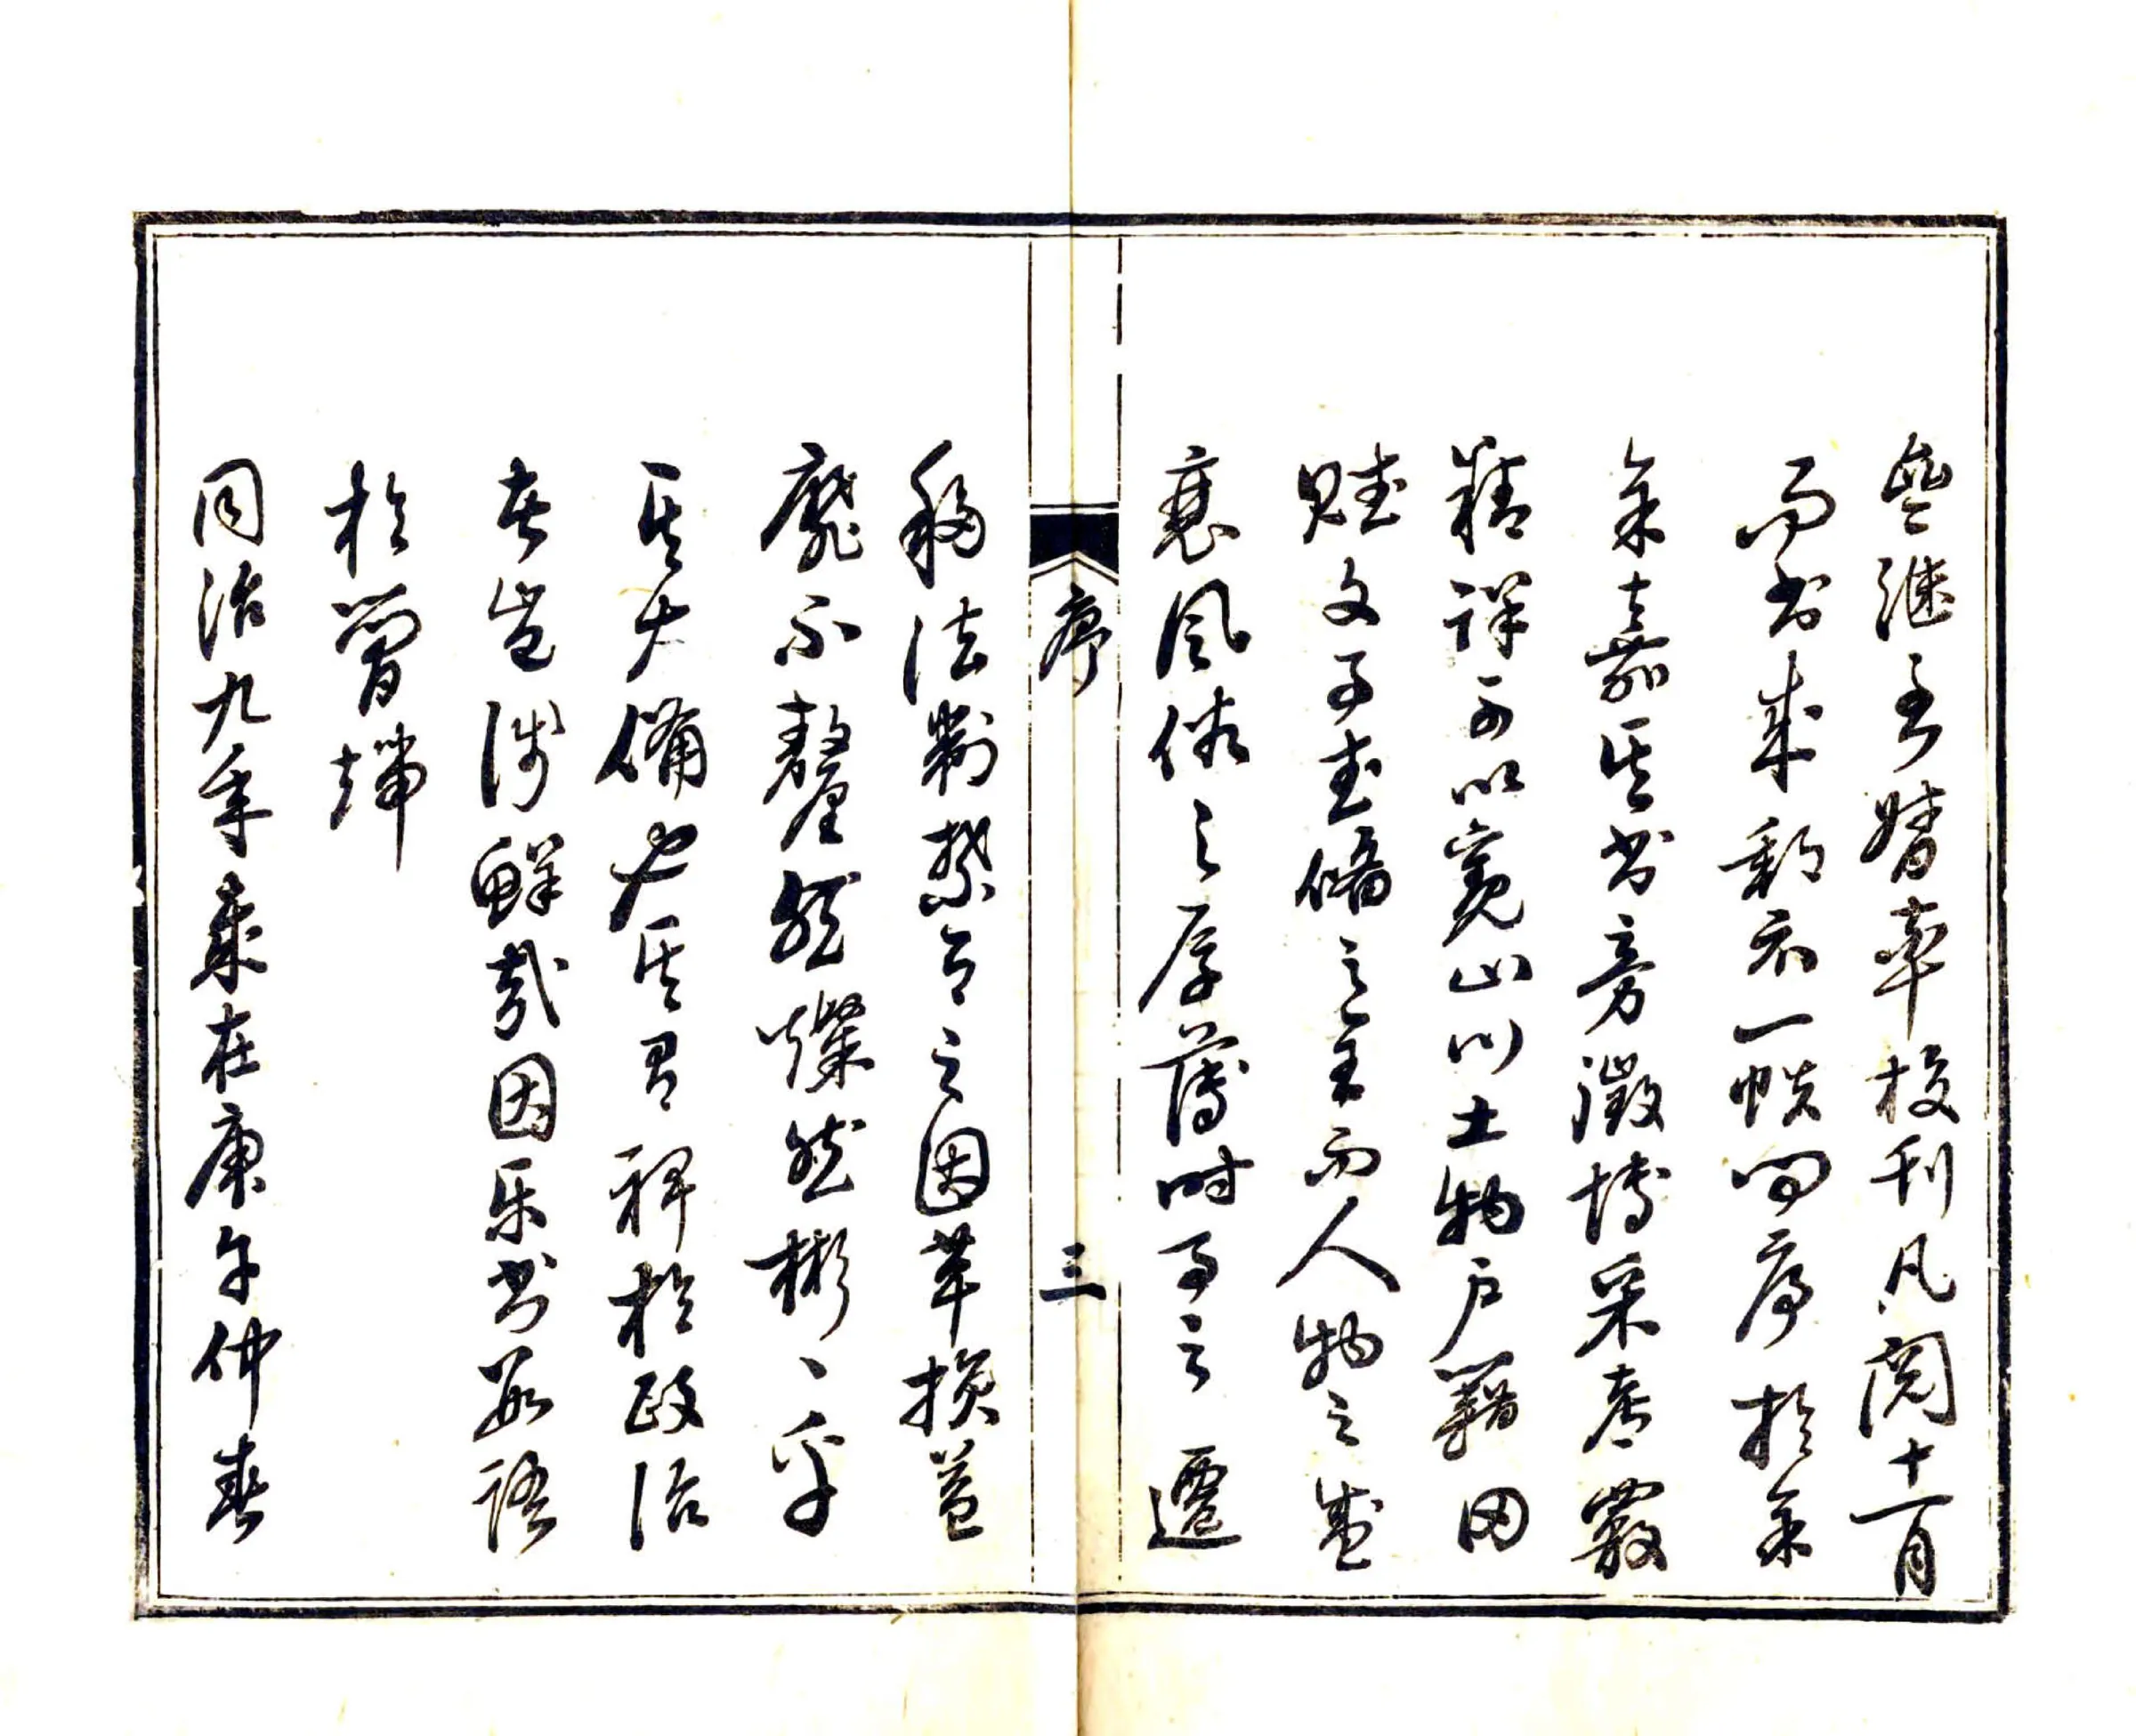 繼至督率校刊凡閱十一月
而書成郵示一帙問序於余
余嘉其書旁徵博采考覈
精詳可以寬山川土物戶籍田
賦文事武備之全而人物之盛
衰風俗之厚薄時事之遷
序
三
移法制禁令之因革損益
靡不釐然燦然彬彬乎
其大備也其有裨於政治
者豈淺鮮哉因樂書數語
於簡端
同治九年歲在庚午仲春